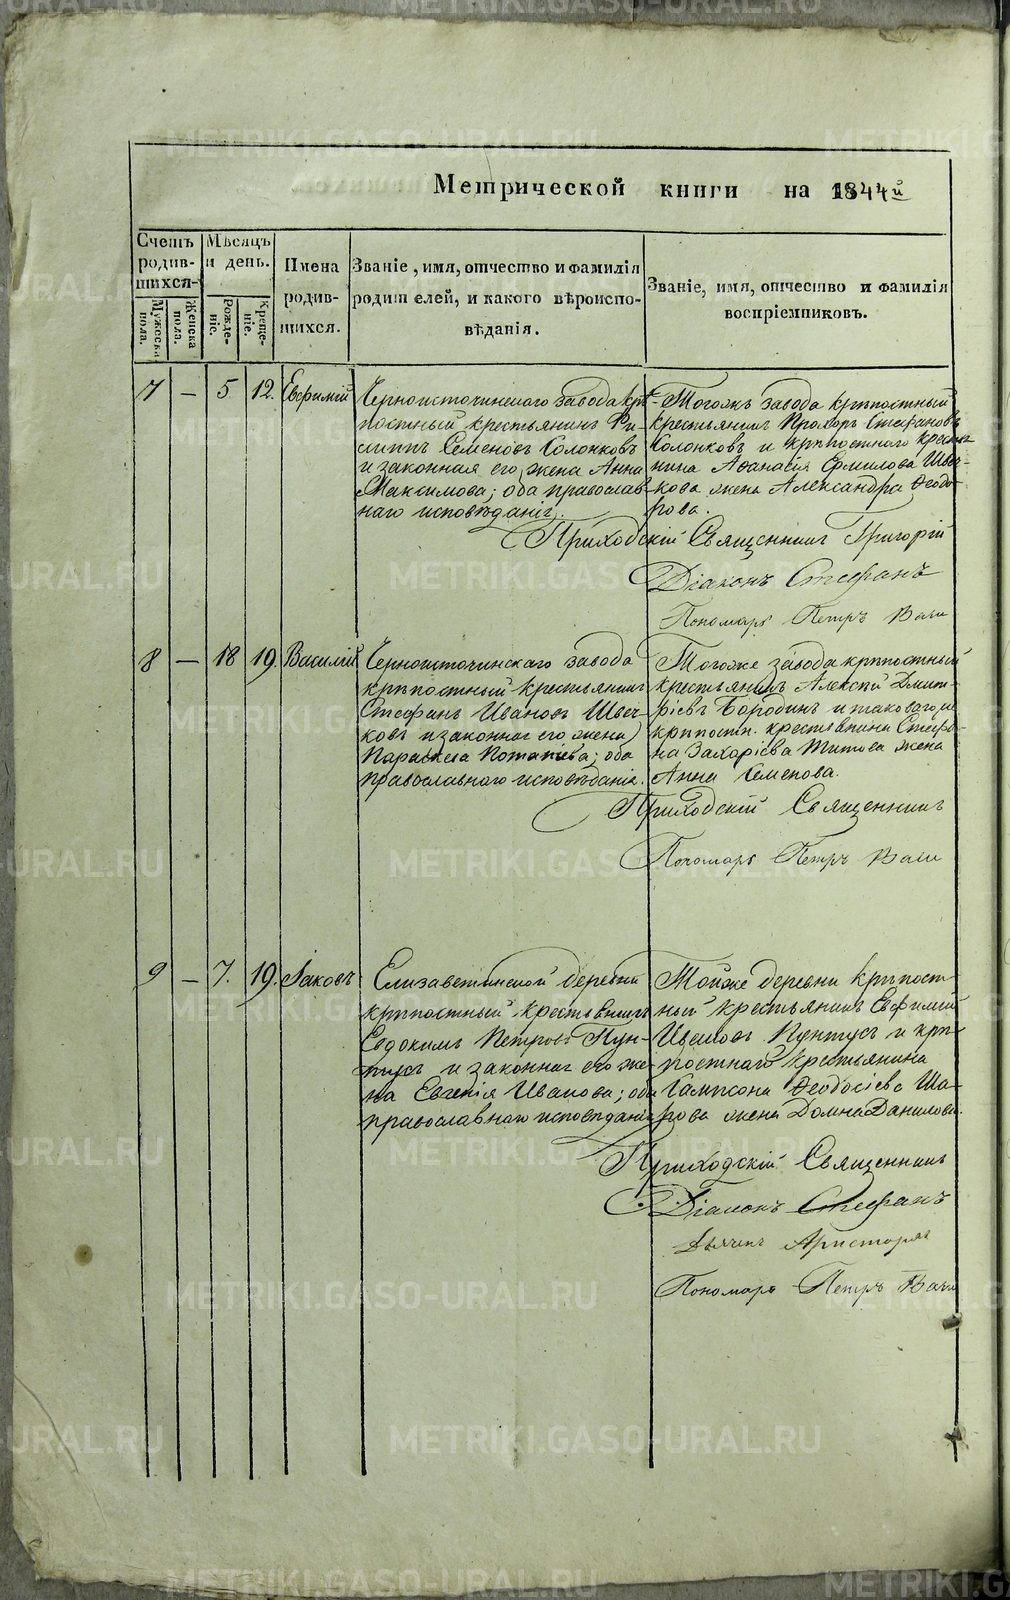 METRIKI.GASO-URAL.RU
Метрической книги на 1844й
Счетъ родив-
шихся.
Мужеска пола.
Женска пола.
Мѣсяцъ и день.
Рожде-
ніе.
Креще-
ніе.
Имена
родив-
шихся.
Званіе, имя, отчество и фамилія
родителей, и какого вѣроиспо-
вѣданія.
Званіе, имя, отчество и фамилія
воспріемниковъ.
7 — 5 12. Евфимій
Черноисточинскаго завода крѣ-
постный крестьянинъ Фи-
липпъ Семеновъ Солонковъ
и законная его жена Анна
Максимова; оба православ-
наго исповѣданія.
Тогожъ завода крѣпостный
крестьянинъ Прохоръ Стефановъ
Солонковъ и крѣпостнаго кресть-
нина Аѳанасія Швеч-
кова жена Александра Ѳеодо-
рова.
Приходскій Священникъ Григорій
Діаконъ Стефанъ
Пономарь Петръ Васи
8 — 18 19. Василій
Черноисточинскаго завода
крѣпостный крестьянинъ
Стефанъ Ивановъ Швеч-
ковъ и законная его жена
Параскева Потапіева; оба
православнаго исповѣданія.
Тогоже завода крѣпостный
крестьянинъ Алексѣй Дмит-
ріевъ Бородинъ и таковагоже
крѣпостн. крестьянина Стефа-
на Захаріева Титова жена
Анна Семенова.
Приходскій Священникъ
Пономарь Петръ Васи
9 — 7. 19. Іаковъ
Елизаветинской деревни
крѣпостный крестьянинъ
Евдокимъ Петровъ Пун-
тусъ и законная его же-
на Евгенія Иванова; оба
православнаго исповѣданія
Тойже деревни крѣпост-
ный крестьянинъ Евфимій
Ивановъ Пунтусъ и крѣ-
постнаго крестьянина
Сампсона Ѳеодосіева Ша-
рова жена Домна Данилова.
Приходскій Священникъ
Діаконъ Стефанъ
Дьячекъ Аристархъ
Пономарь Петръ Васи